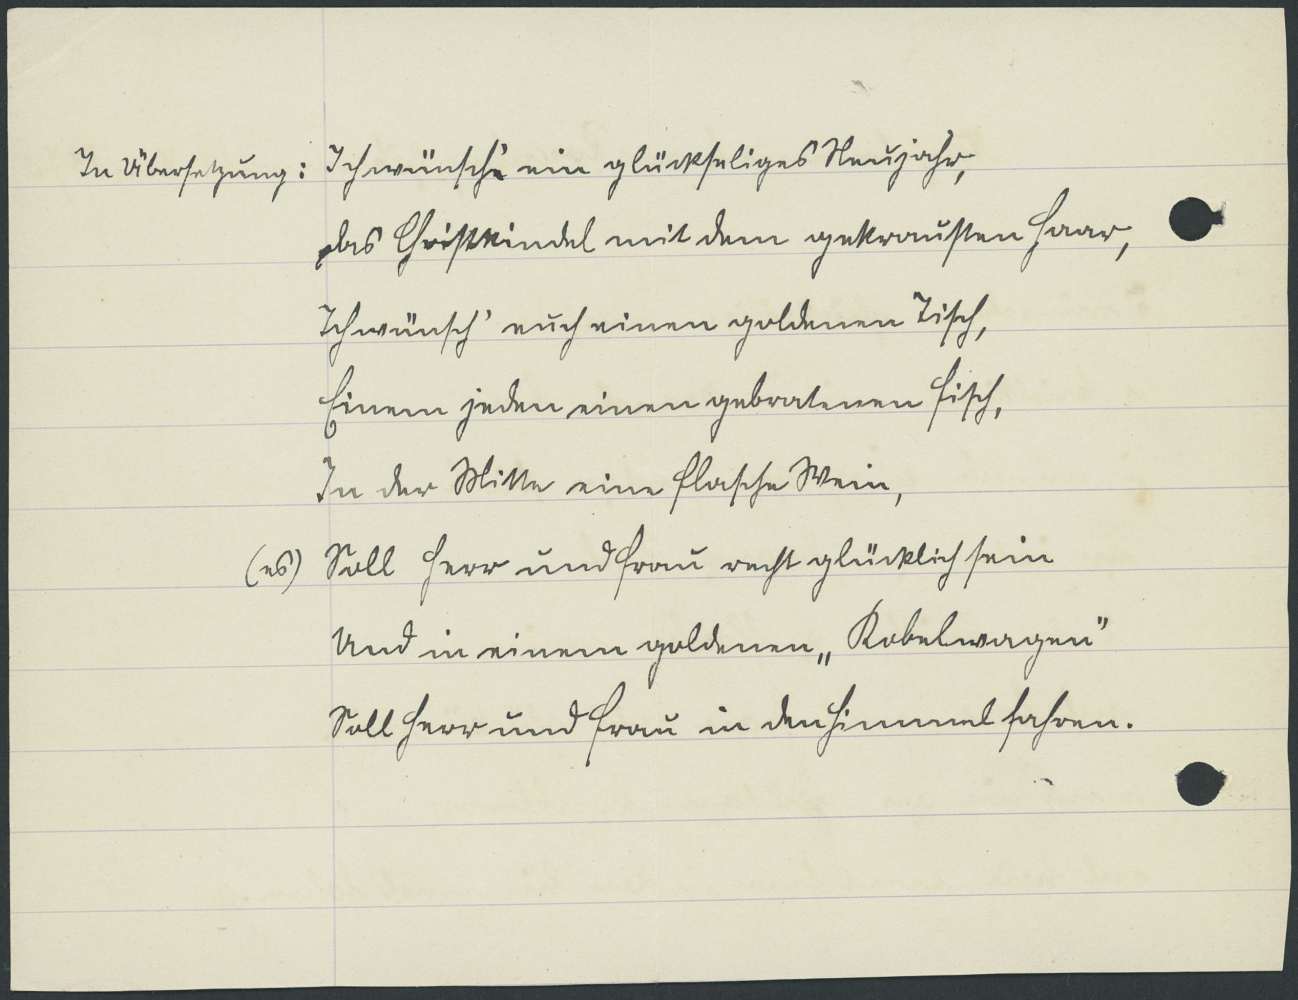 In Übersetzung: Ich wünsch' ein glückseliges Neujahr,
das Christkindel mit dem gekrausten Haar,
Ich wünsch' euch einen goldenen Tisch,
Einem jeden einen gebratenen Fisch,
In der Mitte eine Flasche Wein,
(es) Soll Herr und Frau recht glücklich sein
Und in einem goldenen „Kobelwagen"
Soll Herr und Frau in den Himmel fahren.